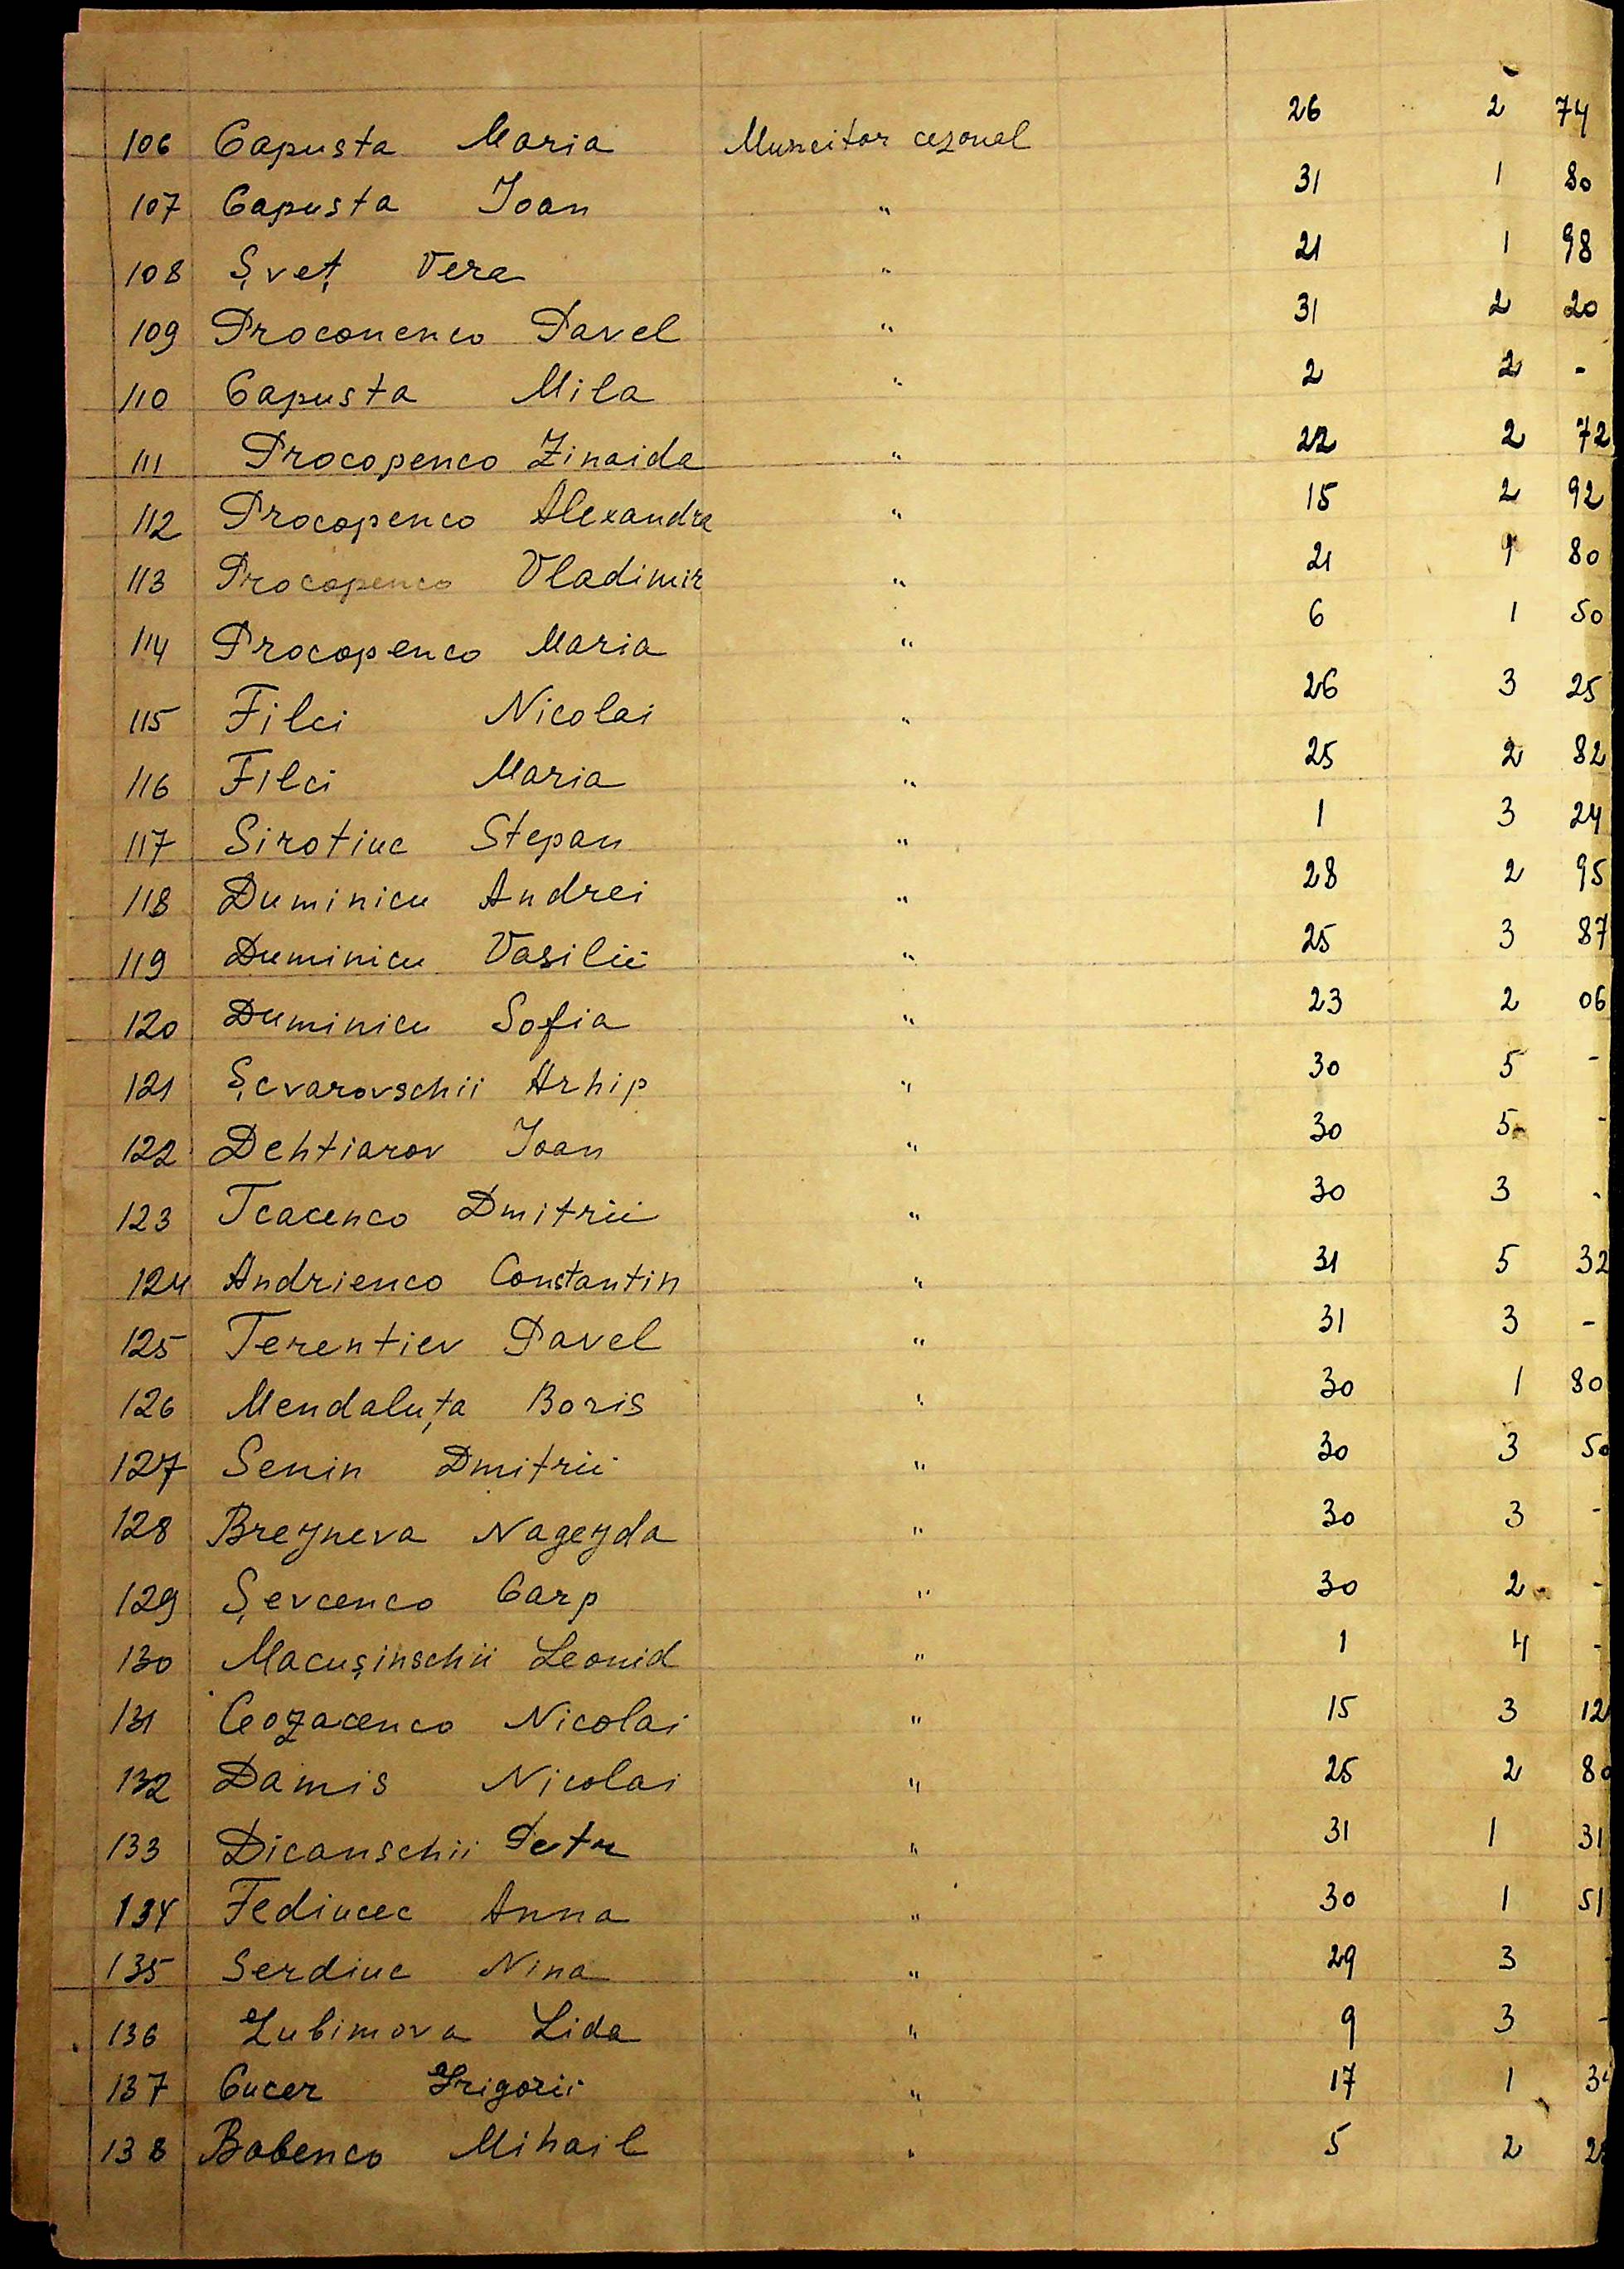 106 Capusta Maria Muncitor cezonal 26 2 74
107 Capusta Ioan " 31 1 80
108 Șveț Vera " 21 1 98
109 Proconenco Pavel " 31 2 20
110 Capusta Mila " 2 2 -
111 Procopenco Zinaida " 22 2 72
112 Procopenco Alexandra " 15 2 92
113 Procopenco Vladimir " 21 1 80
114 Procopenco Maria " 6 1 50
115 Filci Nicolai " 26 3 25
116 Filci Maria " 25 2 82
117 Sirotiuc Stepan " 1 3 24
118 Duminicu Andrei " 28 2 95
119 Duminicu Vasilii " 25 3 87
120 Duminicu Sofia " 23 2 06
121 Șcvarovschii Arhip " 30 5 -
122 Dehtiarov Ioan " 30 5 -
123 Tcacenco Dmitrii " 30 3 -
124 Andrienco Constantin " 31 5 32
125 Terentiev Pavel " 31 3 -
126 Mendaluța Boris " 30 1 80
127 Senin Dmitrii " 30 3 50
128 Breyneva Nageyda " 30 3 -
129 Șevcenco Carp " 30 2 -
130 Macușinschii Leonid " 1 4 -
131 Cozacenco Nicolai " 15 3 12
132 Damis Nicolai " 25 2 80
133 Dicanschii Petru " 31 1 31
134 Fediucec Anna " 30 1 51
135 Serdiuc Nina " 29 3
136 Lubimova Lida " 9 3 -
137 Cucer Grigorii " 17 1
138 Babenco Mihail " 5 2